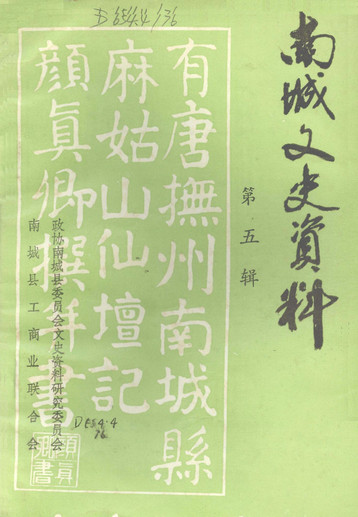 南城文史資料
第五辑
有唐撫州南城縣
麻姑山仙壇記
顔真卿撰并書
政协南城县委员会文史资料研究委员会
南城县工商业联合会
D654.4/76
顔真卿書